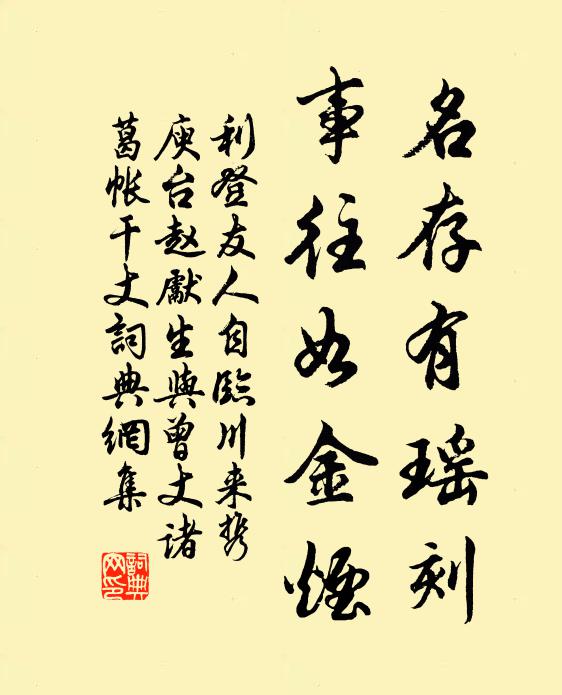 名存有瑶刻
事往如金煙
利登友人自臨川来携
庾台赵獻生與曾丈諸
葛帐干丈詞典網集
詞典网印